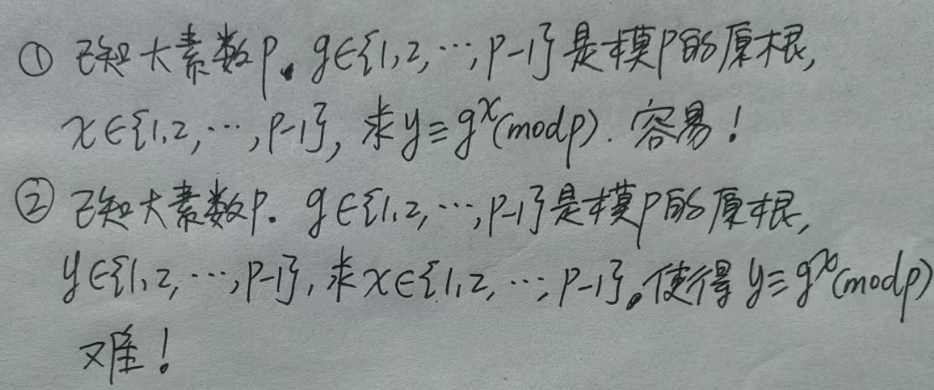 ① 已知大素数p. g∈{1,2,…,p-1}是模p的原根,
x∈{1,2,…,p-1}, 求y≡gˣ(modp). 容易!
② 已知大素数p. g∈{1,2,…,p-1}是模p的原根,
y∈{1,2,…,p-1}, 求x∈{1,2,…,p-1}。使得y≡gˣ(modp)
难!